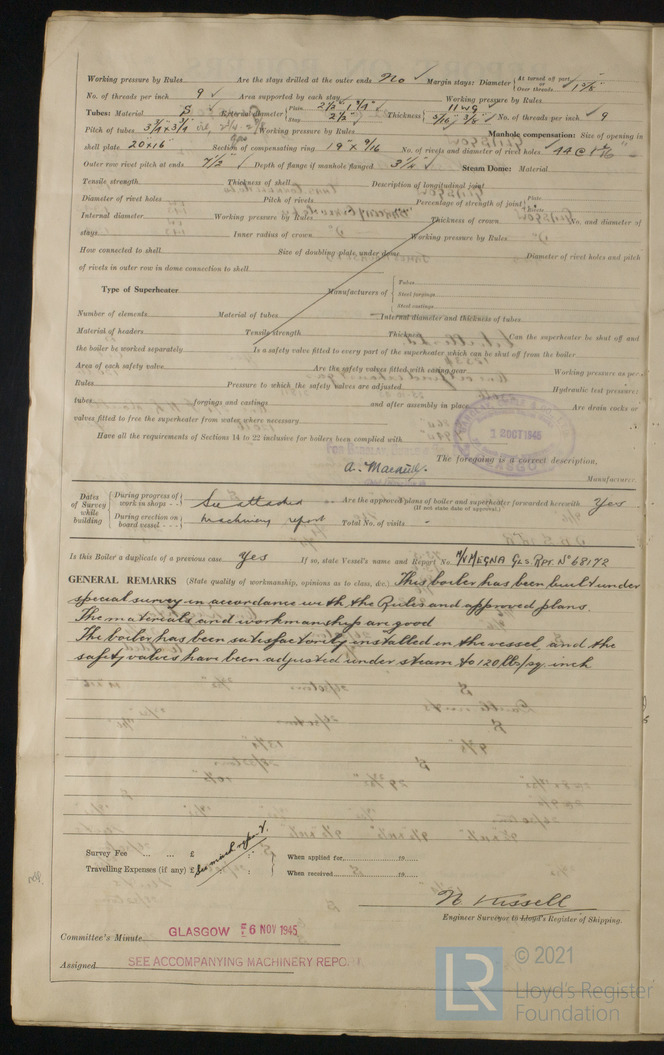 Working pressure by Rules Are the stays drilled at the outer ends No Margin stays: Diameter { At turned off part or Over threads 1 5/8"
No. of threads per inch 9 Area supported by each stay Working pressure by Rules
Tubes: Material S External diameter { Plain 2 1/2" Stay 2 1/2" Thickness { 11 WG 5/16" 3/8" No. of threads per inch 9
Pitch of tubes 3 3/4 x 3 3/4 Working pressure by Rules Manhole compensation: Size of opening in
shell plate 20" x 16" Section of compensating ring 19" x 9/16 No. of rivets and diameter of rivet holes 44 @
Outer row rivet pitch at ends 7 1/2" Depth of flange if manhole flanged 3 1/4" Steam Dome: Material
Tensile strength Thickness of shell Description of longitudinal joint
Diameter of rivet holes Pitch of rivets Percentage of strength of joint { Plate Rivets
Internal diameter Working pressure by Rules Thickness of crown No. and diameter of
stays Inner radius of crown Working pressure by Rules
How connected to shell Size of doubling plate under dome Diameter of rivet holes and pitch
of rivets in outer row in dome connection to shell
Type of Superheater Manufacturers of { Tubes Steel forgings Steel castings
Number of elements Material of tubes Internal diameter and thickness of tubes
Material of headers Tensile strength Thickness Can the superheater be shut off and
the boiler be worked separately Is a safety valve fitted to every part of the superheater which can be shut off from the boiler
Area of each safety valve Are the safety valves fitted with easing gear Working pressure as per
Rules Pressure to which the safety valves are adjusted Hydraulic test pressure:
tubes forgings and castings and after assembly in place Are drain cocks or
valves fitted to free the superheater from water where necessary
Have all the requirements of Sections 14 to 22 inclusive for boilers been complied with
12 OCT 1945
The foregoing is a correct description,
Manufacturer.
Dates of Survey while building { During progress of work in shops - - During erection on board vessel - - - } See attached machinery report
Are the approved plans of boiler and superheater forwarded herewith Yes
(If not state date of approval.)
Total No. of visits "
Is this Boiler a duplicate of a previous case Yes If so, state Vessel's name and Report No. M/V MEGNA Gls Rpt. No 68172
GENERAL REMARKS (State quality of workmanship, opinions as to class, &c.) This boiler has been built under
special survey in accordance with the Rules and approved plans.
The materials and workmanship are good
The boiler has been satisfactorily installed in the vessel, and the
safety valves have been adjusted under steam to 120 lb/sq. inch
Survey Fee ... ... £ : : When applied for 19
Travelling Expenses (if any) £ : : When received 19
See mach. rept.
N Kissell
Engineer Surveyor to Lloyd's Register of Shipping.
Committee's Minute GLASGOW 6 NOV 1945
Assigned SEE ACCOMPANYING MACHINERY REPO
LR © 2021
Lloyd's Register
Foundation